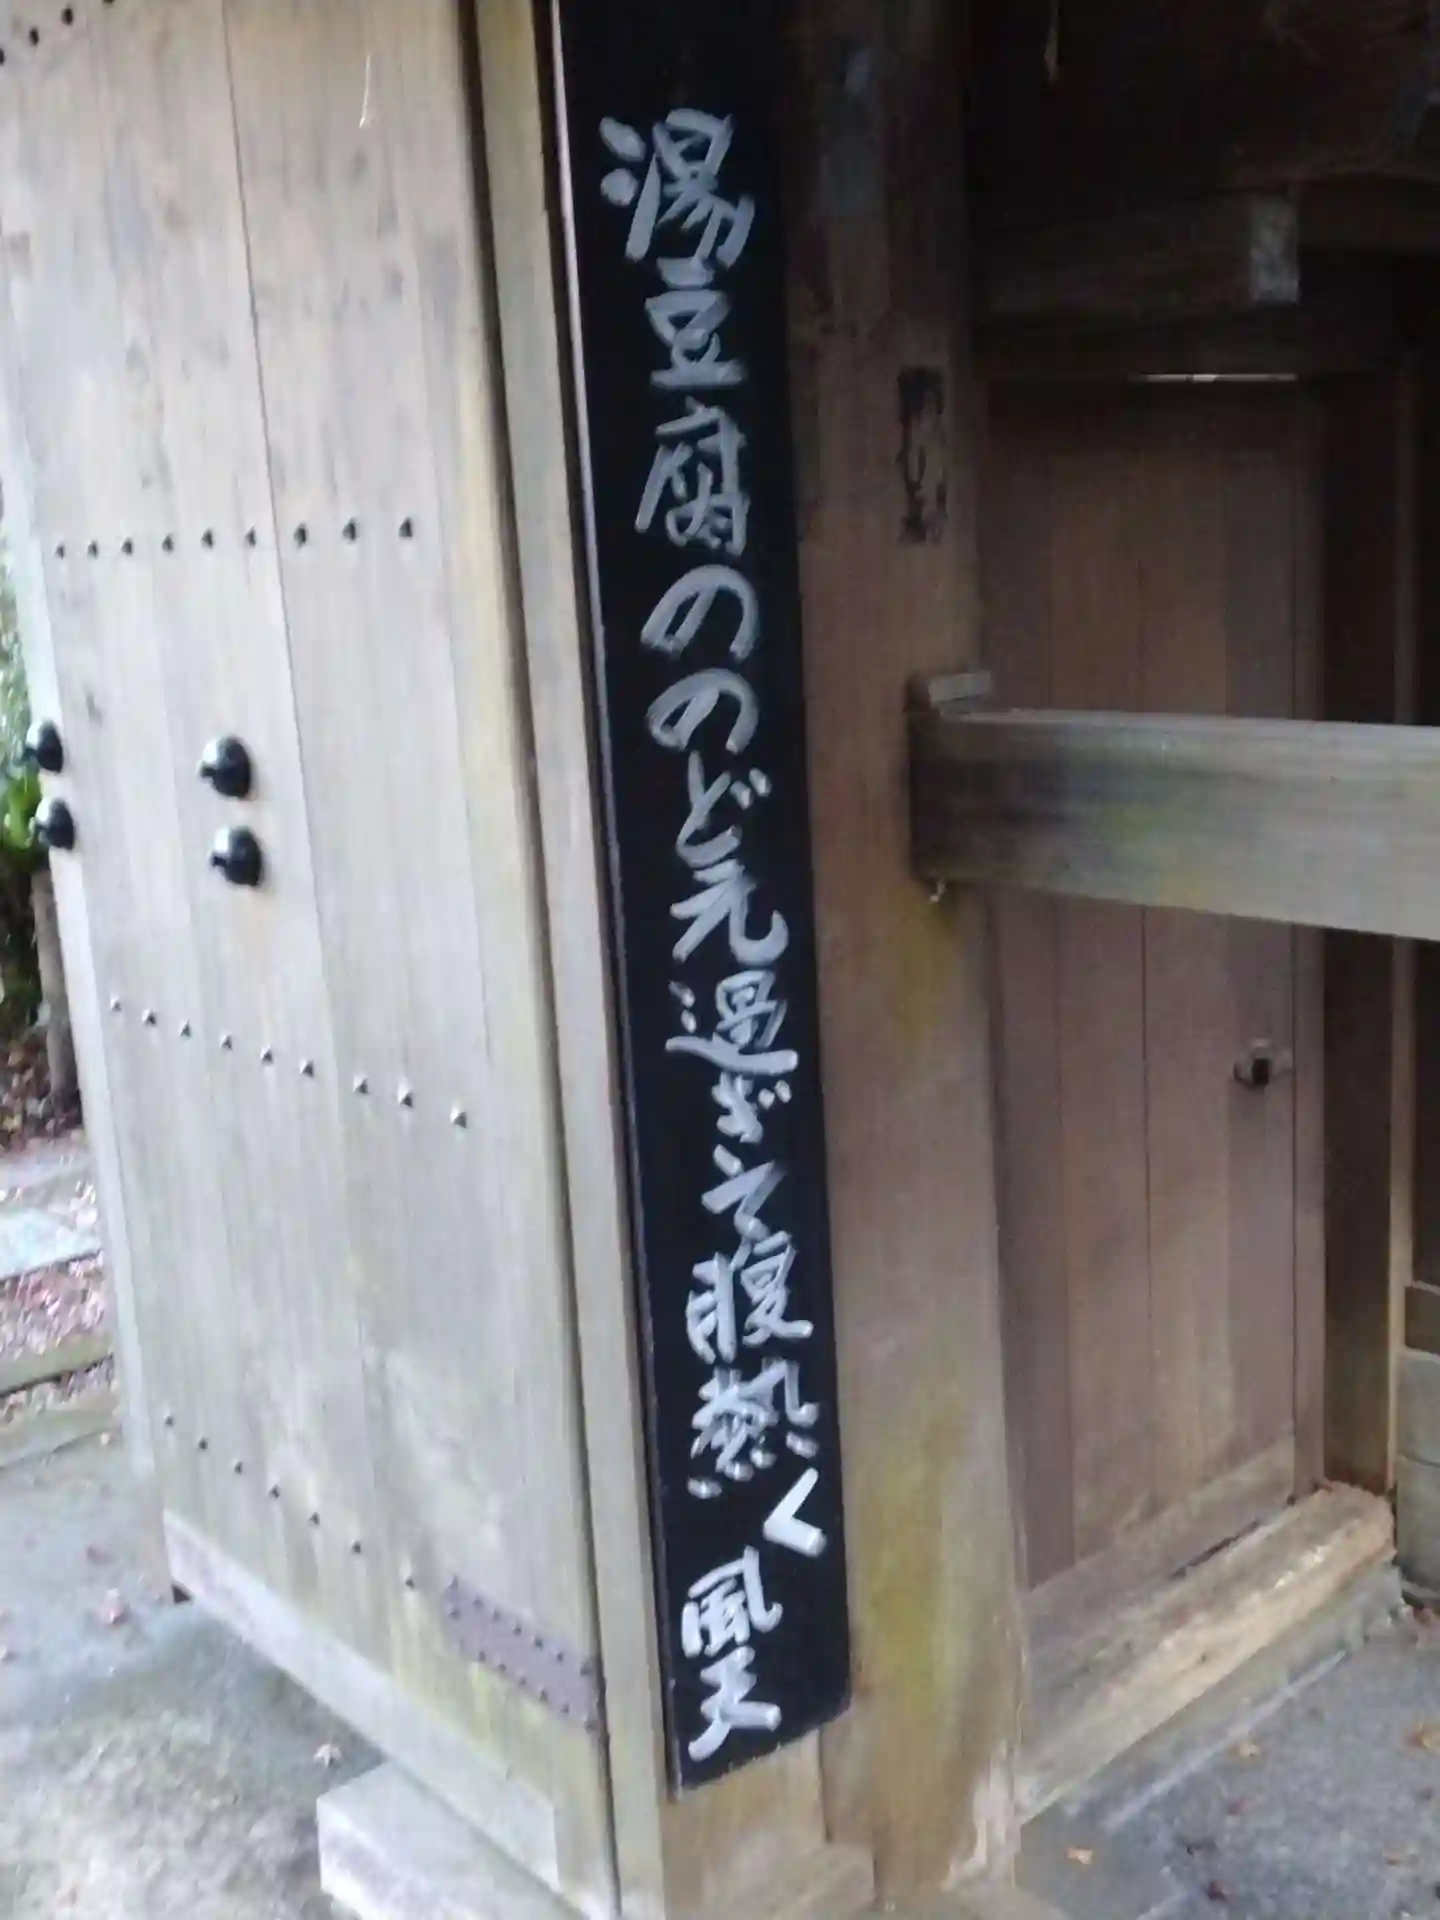 湯豆腐ののど元過ぎて腹熱く 風天